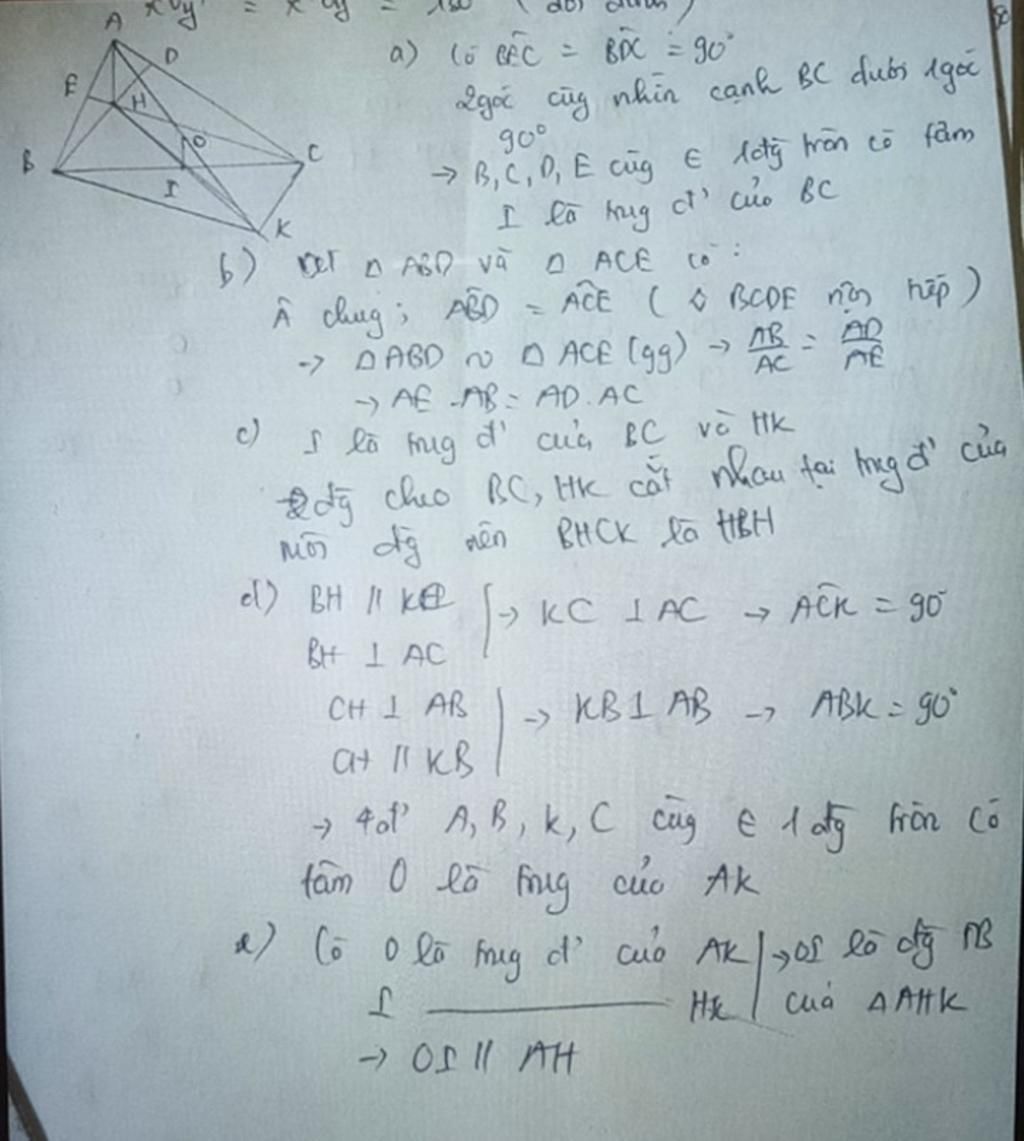 A
D
E
H
O
B
C
I
K
a) Có BEC = BDC = 90°
2góc cùg nhìn cạnh BC dưới 1góc
90°
→ B, C, D, E cùg ∈ 1đg tròn có tâm
I là trug đ' của BC
b) xét Δ ABD và Δ ACE có :
Â chug ; ABD = ACE ( ◊ BCDE nội tiếp )
→ Δ ABD ~ Δ ACE (gg) → AB/AC = AD/AE
→ AE . AB = AD . AC
c) I là trug đ' của BC và HK
2đg chéo BC, HK cắt nhau tại trug đ' của
mỗi đg nên BHCK là HBH
d) BH // KC
BH ⊥ AC
→ KC ⊥ AC → ACK = 90°
CH ⊥ AB
CH // KB
→ KB ⊥ AB → ABK = 90°
→ 4đ' A, B, K, C cùg ∈ 1 đg tròn có
tâm O là trug của AK
e) Có O là trug đ' của AK
I ——— HK
→ OI là đg TB
của Δ AHK
→ OI // AH